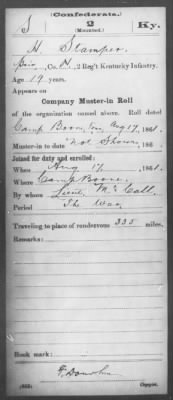 (Confederate.)
S 2 Ky.
(Mounted.)
H. Stamper
Co. H, 2 Reg't Kentucky Infantry.
Age 19 years.
Appears on
Company Muster-in Roll
of the organization named above. Roll dated
Camp Boone, Ten, Aug 17, 1861.
Muster-in to date not Shown, 186
Joined for duty and enrolled:
When Aug 17, 1861.
Where Camp Boone,
By whom Lieut. McCall.
Period The War
Traveling to place of rendezvous 335 miles.
Remarks:
Book mark:
F. Donohu
Copyist.